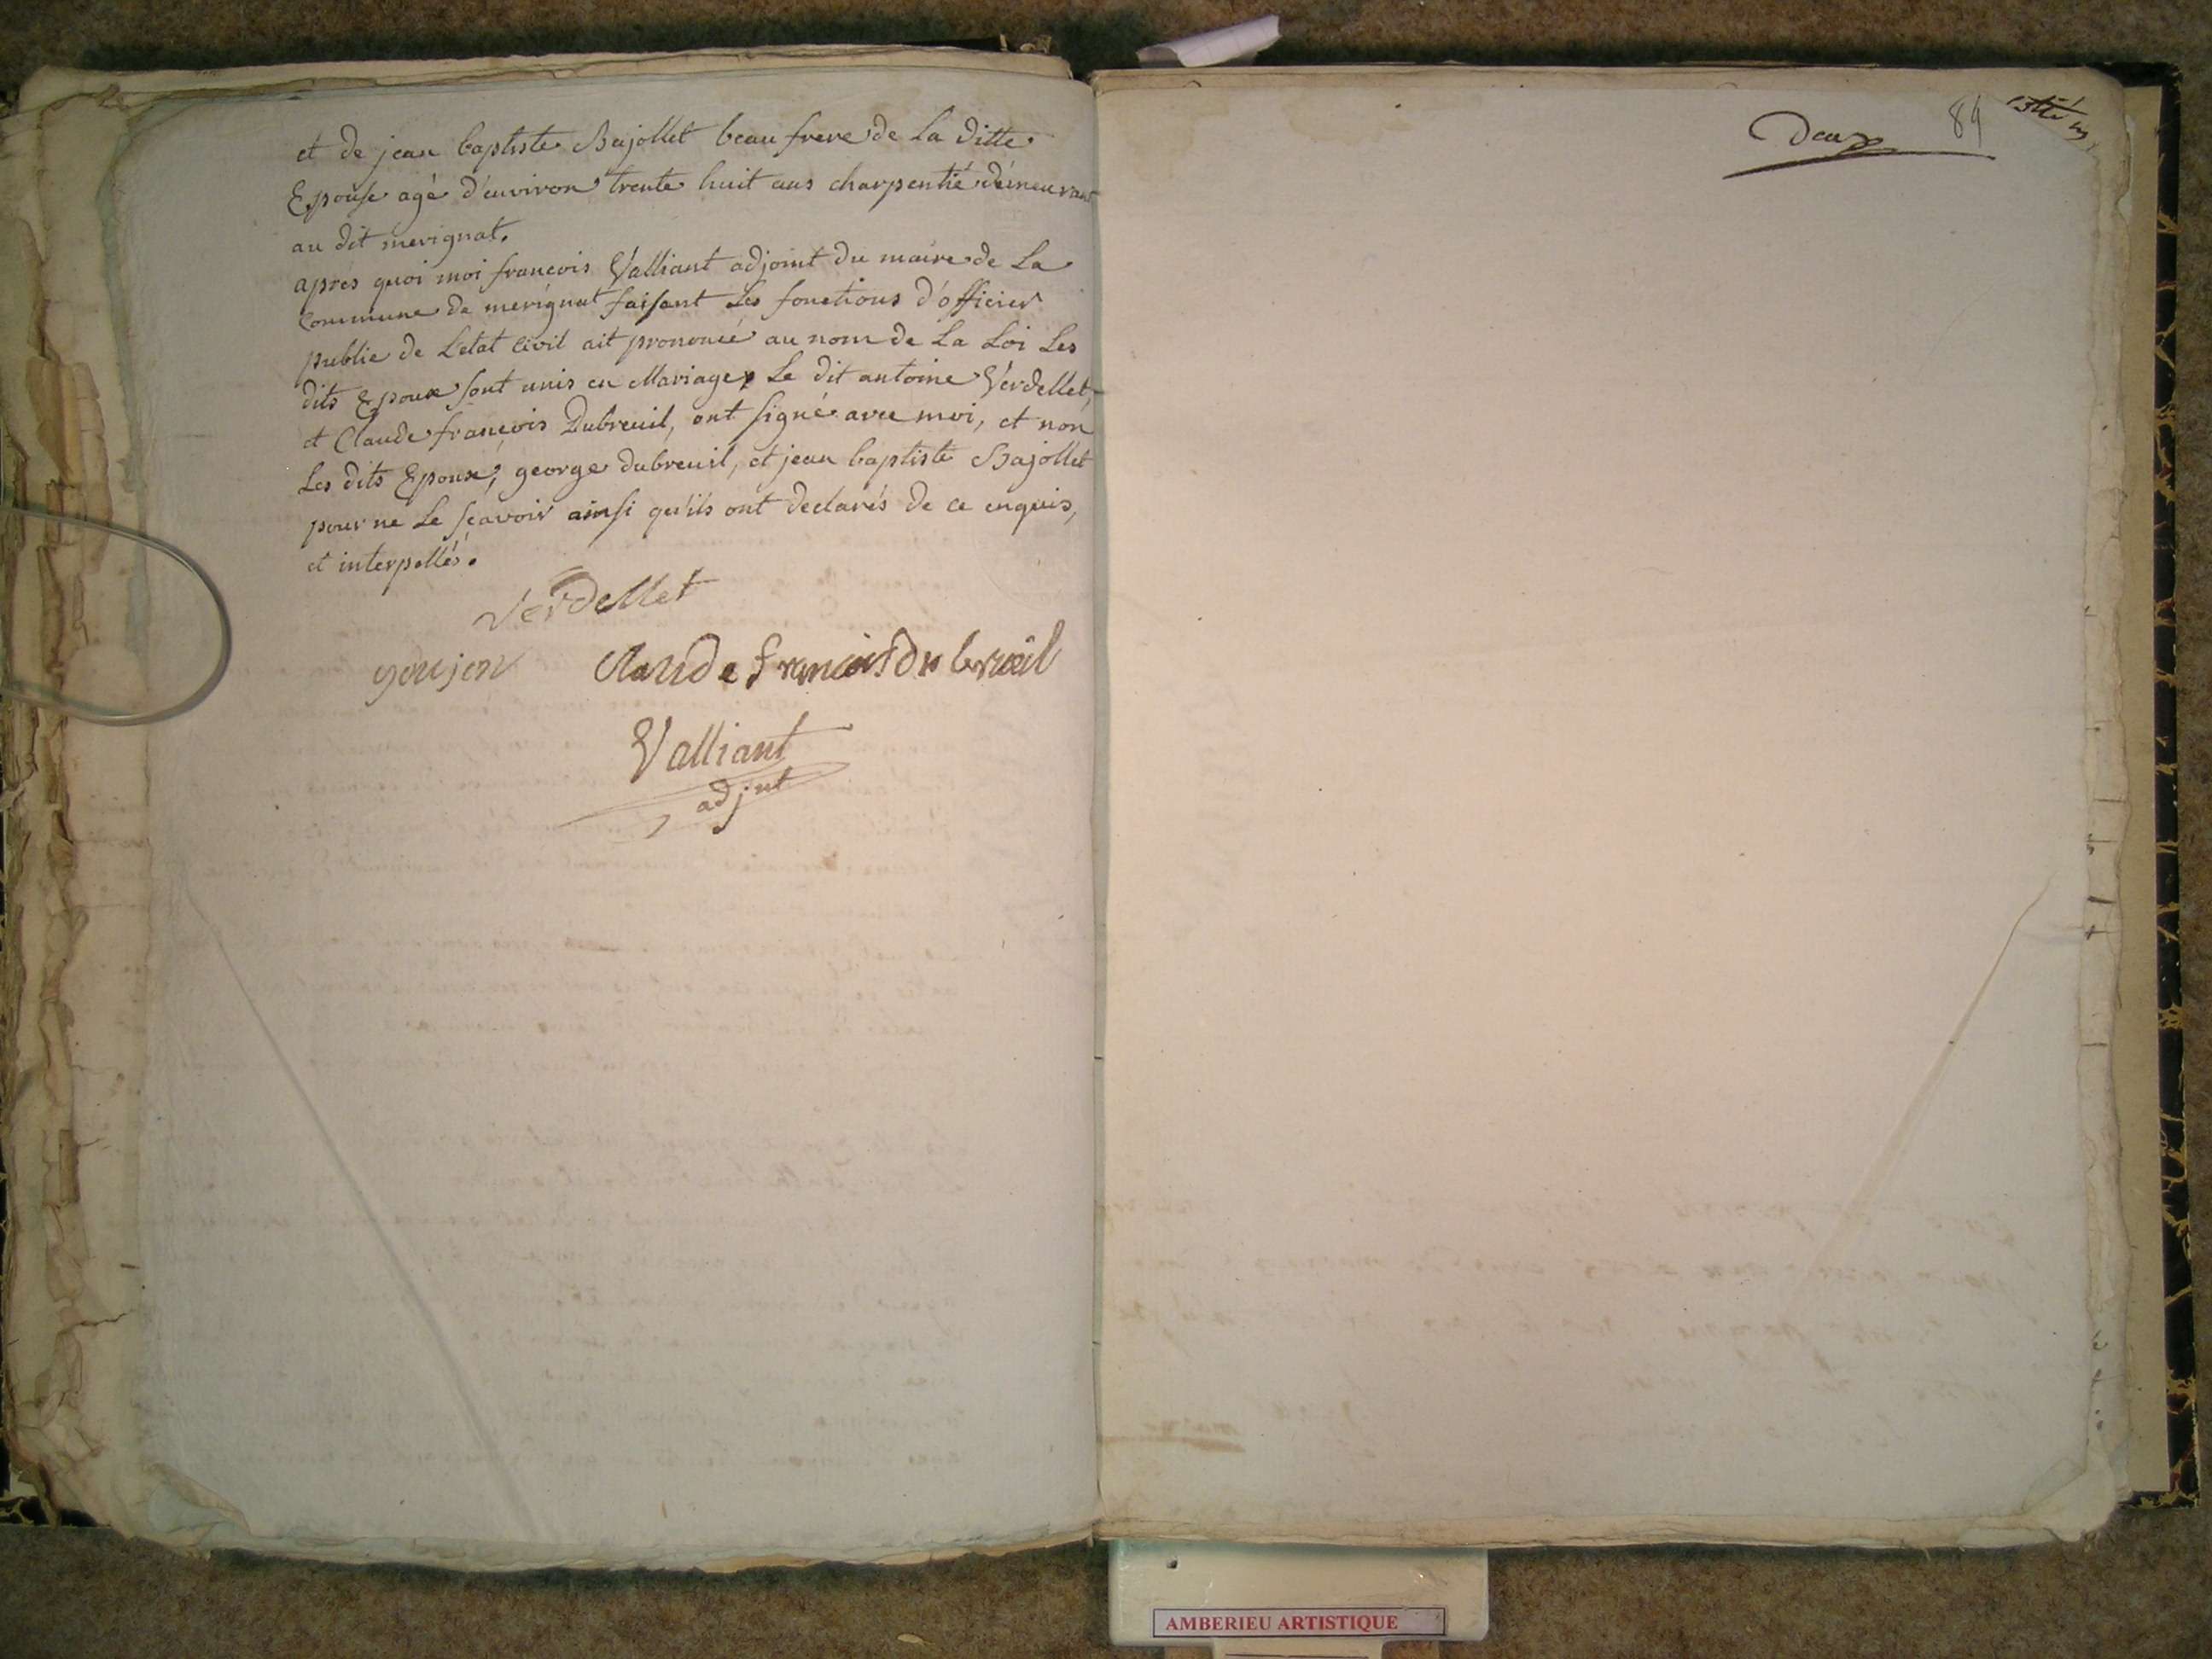 et de jean baptiste Bajollet beau frere de La ditte
Epouse agé d'environ trente huit ans charpentié démeurant
au dit merignat.
apres quoi moi francois Valliant adjoint du maire de La
Commune de merignat faisant Les fonctions d'officier
public de L'etat Civil ait prononcé au nom de La Loi Les
dits Epoux sont unis en Mariage, Le dit antoine Verdellet,
et Claude françois Dubreuil, ont signé avec moi, et non
Les dits Epoux, george dubreuil, et jean baptiste Bajollet
pour ne Le scavoir ainsi qu'ils ont declarés de ce enquis,
et interpellés.
Verdellet
goujon Claude francois du breuil
Valliant
adjnt
Deux
89
AMBERIEU ARTISTIQUE